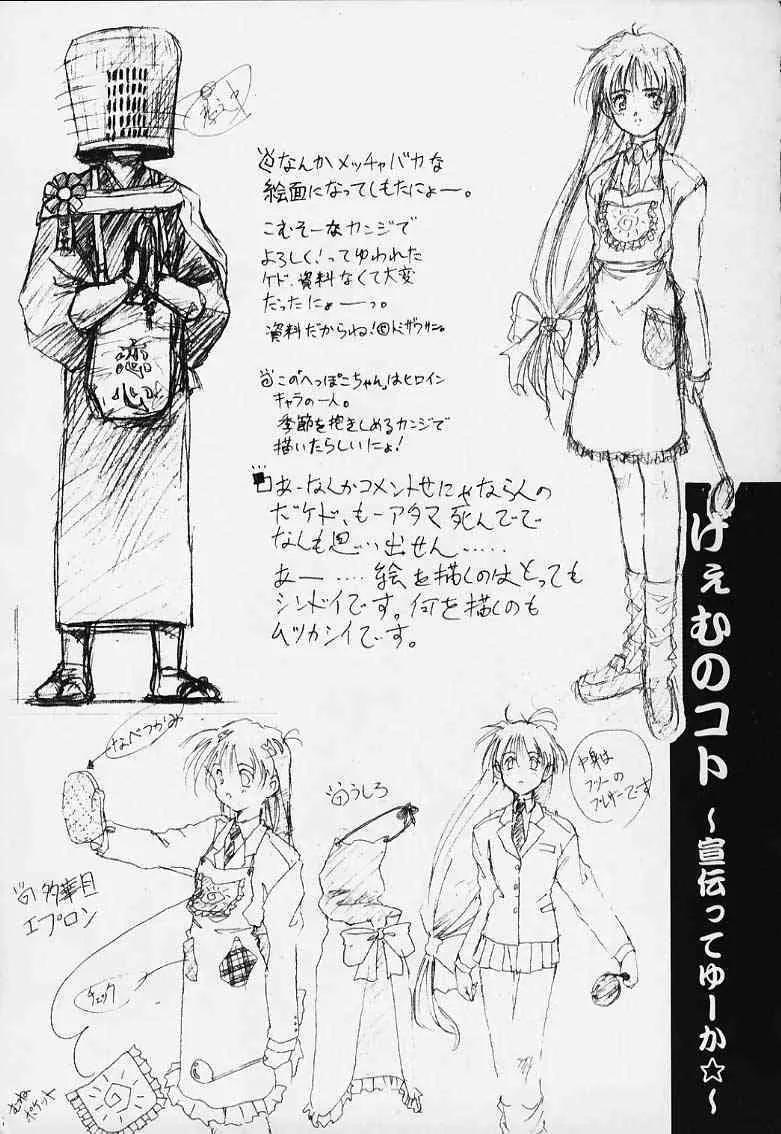 げぇむのコト
～宣伝ってゆーか☆～
なんかメッチャバカな
絵面になってしもたにょー。
こむそーなカンジで
よろしく!ってゆわれた
ケド、資料なくて大変
だったにょーっ。
資料だからね!
この「へっぽこちゃん」はヒロイン
キャラの一人。
季節を抱きしめるカンジで
描いたらしいにょ!
あーなんかコメントせにゃならんの
だケド、もーアタマ死んでで
なんも思い出せん……
あー……絵を描くのはとっても
シンドイです。何を描くのも
ムツカシイです。
恋
心
なべつかみ
うしろ
中身は
フツーの
ブレザーです
多華目
エプロン
チェック
むね
ポケット